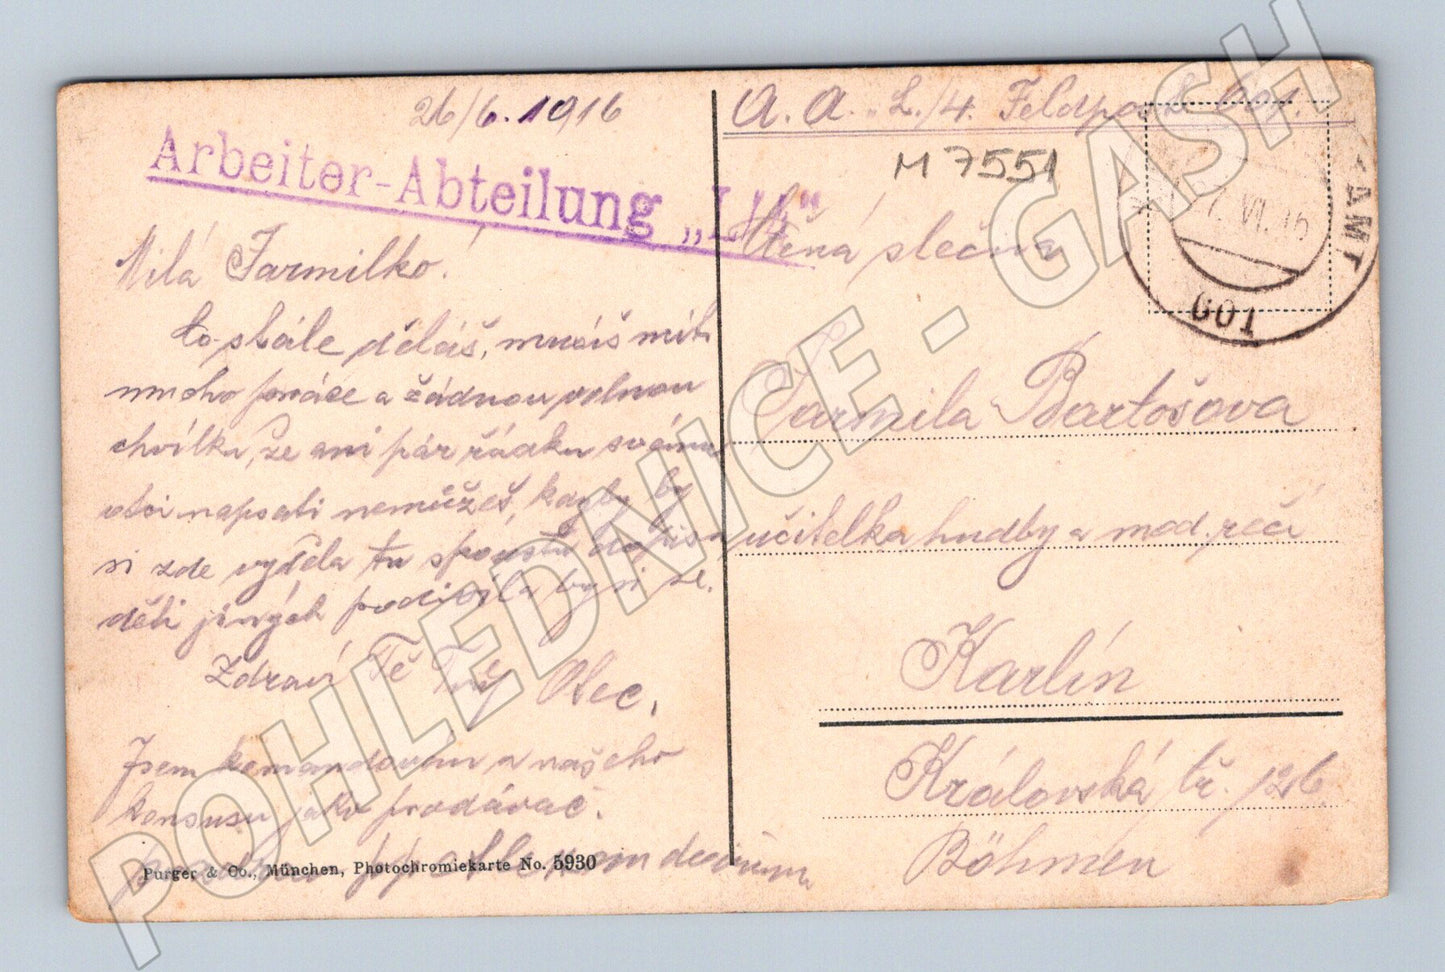 26/6. 1916
Arbeiter-Abteilung „L/4"
Milá Jarmilko!
to stále děláš, musíš míti
mnoho práce a žádnou volnou
chvilku, že ani pár řádku svému
otci napsati nemůžeš, kdyby
si zde vyděla tu spoustu dopisu
děti jiných podivila by si se.
Zdraví Tě Tvůj Otec.
Jsem komandován našeho
konsusu jako prodavač.
Purger & Co., München, Photochromiekarte No. 5930
A. A. „L./4. Feldpost 601.
M 7551
27. VI. 16
AMT
601
Ctěná slečna
Jarmila Bartošova
učitelka hudby a mod. řečí
Karlín
Královská tř. 126
Böhmen
POHLEDNICE - GASH